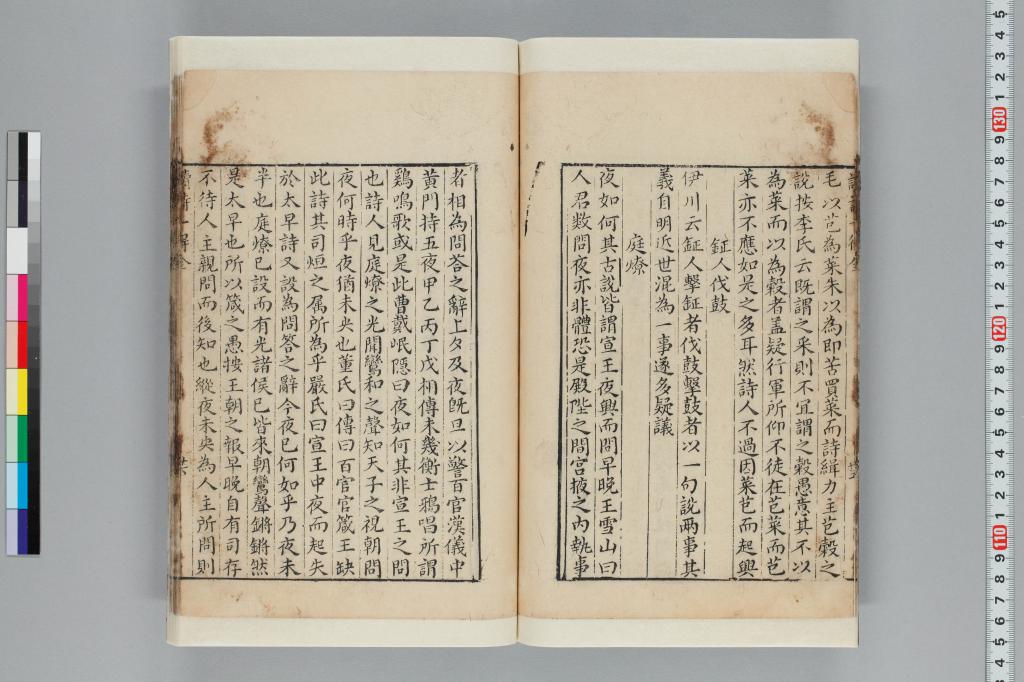 毛以芑為菜朱以為即苦買菜而詩緝力主芑穀之
說按李氏云既謂之采則不宜謂之穀愚意其不以
為菜而以為穀者盖疑行軍所仰不徒在芑菜而芑
菜亦不應如是之多耳然詩人不過因菜芑而起興
鉦人伐鼓
伊川云鉦人擊鉦者伐鼓擊鼓者以一句說兩事其
義自明近世混為一事遂多疑議
庭燎
夜如何其古說皆謂宣王夜興而問早晚王雪山曰
人君数問夜亦非體恐是殿陛之間宮掖之內執事
者相為問荅之辭上夕及夜旣旦以警百官漢儀中
黃門持五夜甲乙丙丁戊相傳未幾衛士鴉唱所謂
鷄鳴歌或是此曹戴岷隱曰夜如何其非宣王之問
也詩人見庭燎之光聞鸞和之聲知天子之視朝問
夜何時乎夜猶未央也董氏曰傳曰百官官箴王缺
此詩其司烜之属所為乎嚴氏曰宣王中夜而起失
於太早詩又設為問答之辭今夜已何如乎乃夜未
半也庭燎已設而有光諸侯已皆來朝鸞聲鏘鏘然
是太早也所以箴之愚按王朝之報早晚自有司存
不待人主親問而後知也縱夜未央為人主所問則